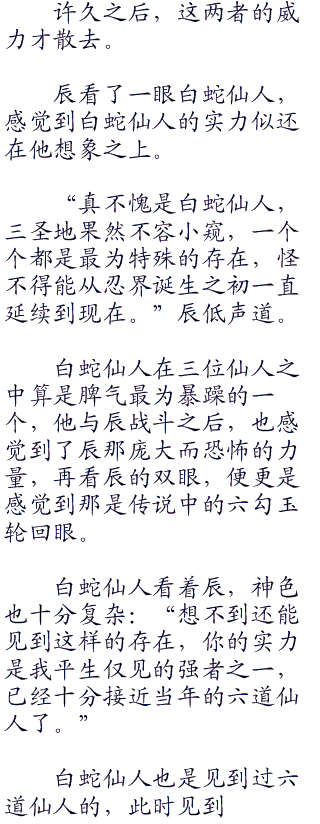 许久之后，这两者的威
力才散去。
辰看了一眼白蛇仙人，
感觉到白蛇仙人的实力似还
在他想象之上。
“真不愧是白蛇仙人，
三圣地果然不容小窥，一个
个都是最为特殊的存在，怪
不得能从忍界诞生之初一直
延续到现在。”辰低声道。
白蛇仙人在三位仙人之
中算是脾气最为暴躁的一
个，他与辰战斗之后，也感
觉到了辰那庞大而恐怖的力
量，再看辰的双眼，便更是
感觉到那是传说中的六勾玉
轮回眼。
白蛇仙人看着辰，神色
也十分复杂：“想不到还能
见到这样的存在，你的实力
是我平生仅见的强者之一，
已经十分接近当年的六道仙
人了。”
白蛇仙人也是见到过六
道仙人的，此时见到